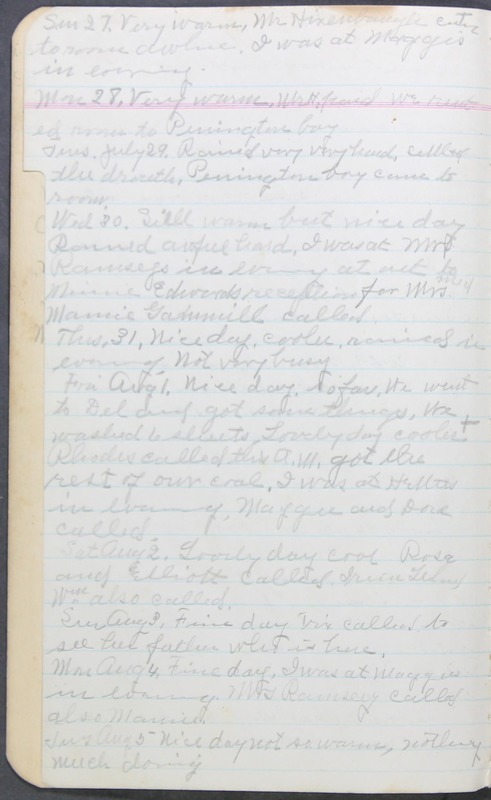 Sun 27. Very warm, Mr Hixenbaugh
to room awhile. I was at Maggies
in evening.
Mon 28. Very warm, Mr H. paid we rent
ed room to Penington boy
Tues. July 29. Rained very very hard, called
the drouth, Penington boy came to
room.
Wed 30. Still warm but nice day
Rained awful hard, I was at Mrs
Ramseys in evening at
Minnie Edwards reception for Mrs
Mamie Gammill called
Thu, 31, Nice day, cooler, rained in
evening Not very busy
Fri Aug 1. Nice day. so far, We went
to Del and got some things, We
washed 6 sheets, Lovely day cooler
Rhodes called this A.M. got the
rest of our coal. I was at
in evening, Maggie and Dora
called.
Sat Aug 2. Lovely day cool Rosa
and Elliott called.
Wm also called.
Sun Aug 3, Fine day Vix called to
see her father who is here.
Mon Aug 4, Fine day, I was at Maggies
in evening. Mrs Ramsey called
also Mamie.
Tues Aug 5 Nice day not so warm, nothing
much doing